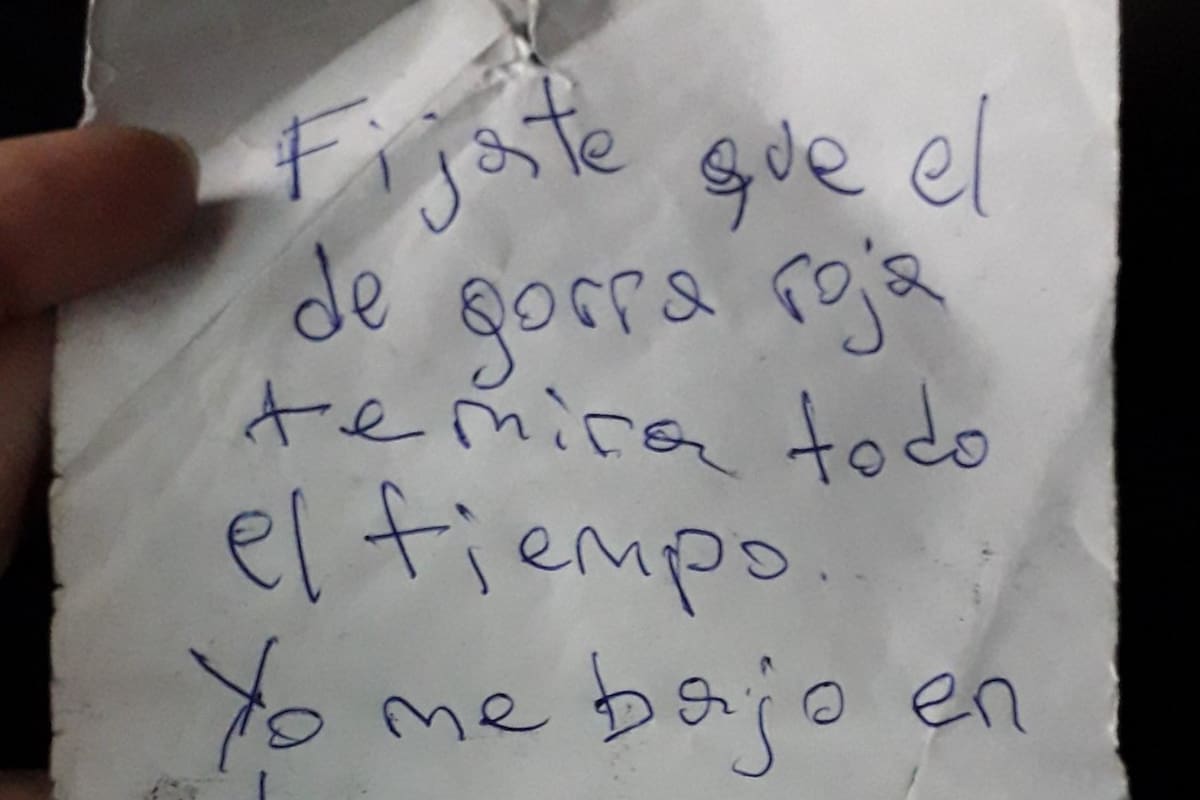 Fijate que el
de gorra roja
te mira todo
el tiempo.
Yo me bajo en